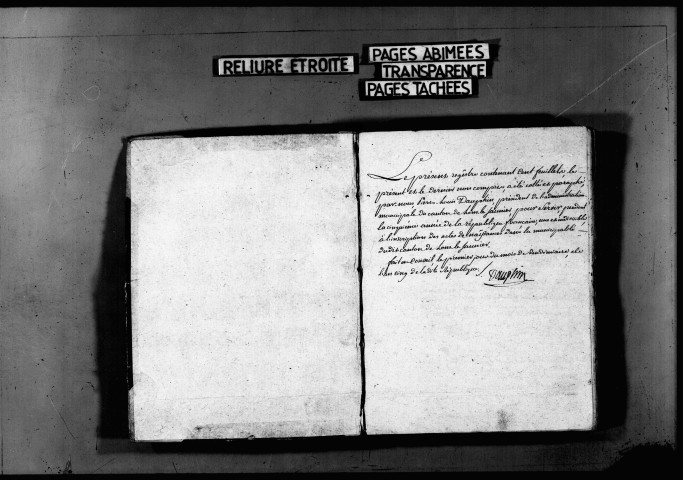 RELIURE ETROITE
PAGES ABIMEES
TRANSPARENCE
PAGES TACHEES
Le présent registre contenant cent feuillets, le
présent et le dernier non compris, a été cotté et paraphé,
par nous Pierre Louis Dauphin, président de l'administration
municipale du canton de Lons le saunier pour servir pendant
la cinquième année de la république française, une et indivisible
à l'inscription des actes de naissances dans la municipalité
dudit canton de Lons le saunier.
fait en conseil le premier jour du mois de vendémiaire, de
l'an cinq de la dite république./.
Dauphin